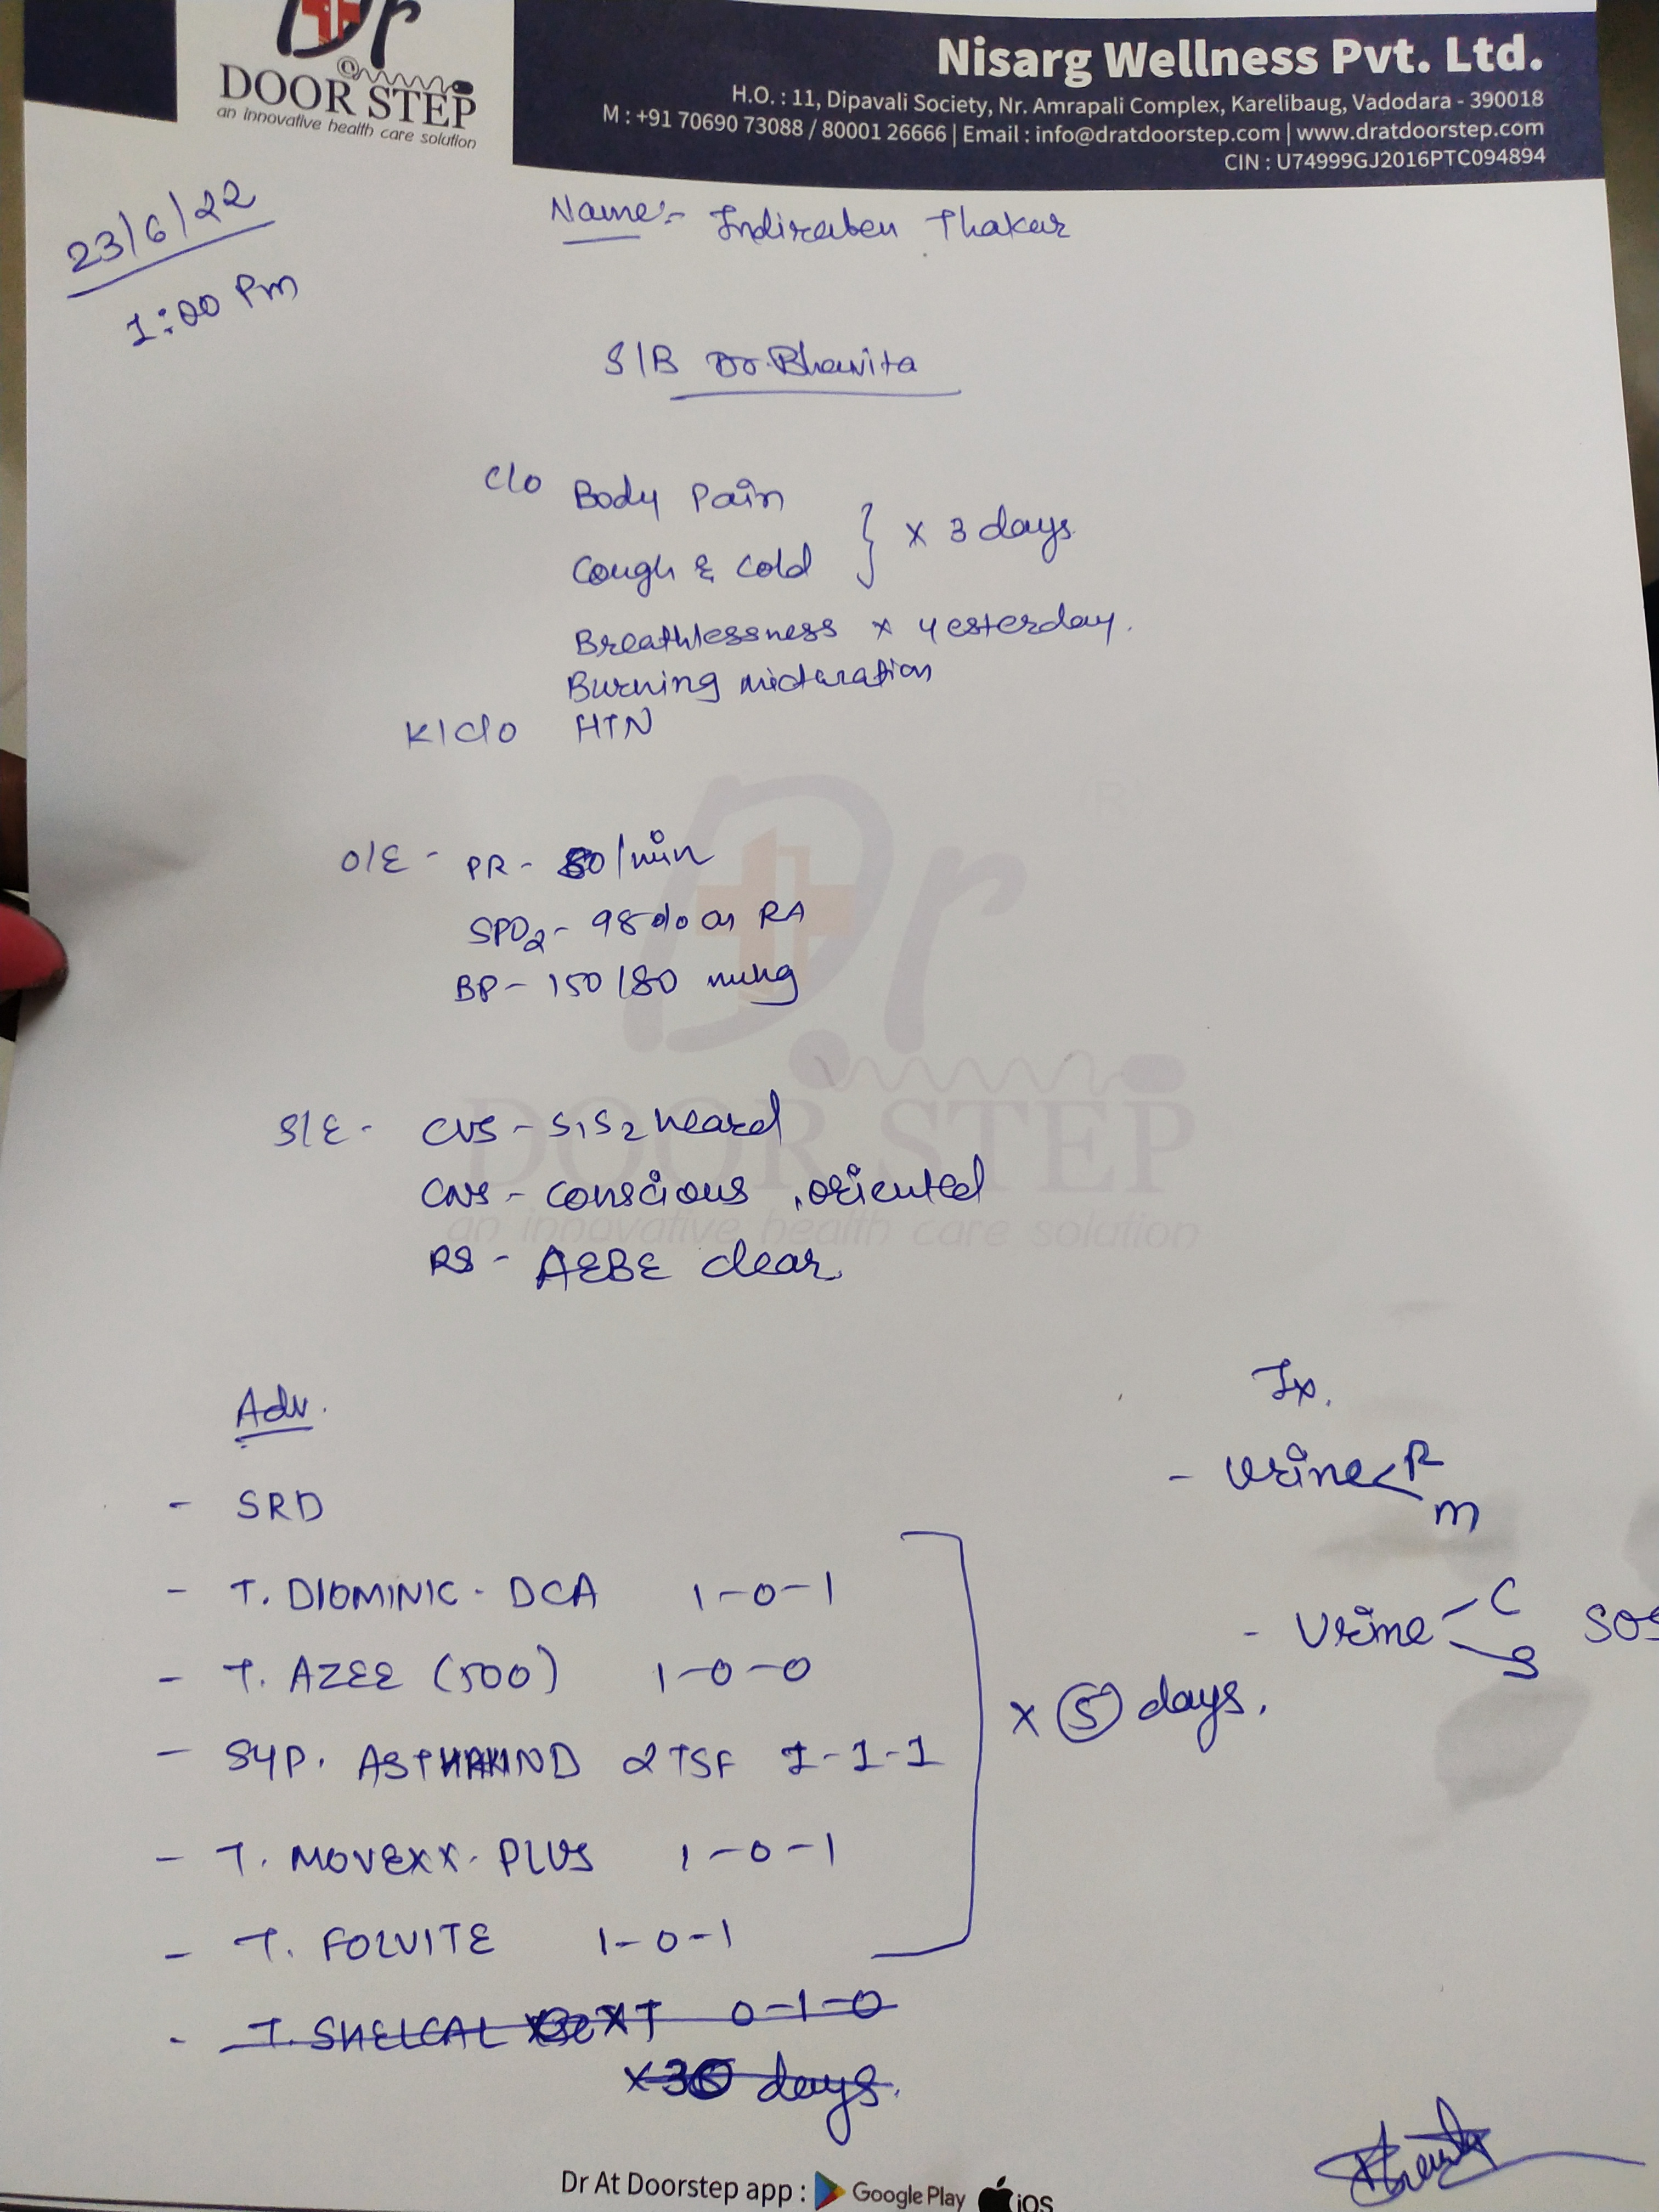 Dr
DOOR STEP
an innovative health care solution
Nisarg Wellness Pvt. Ltd.
H.O. : 11, Dipavali Society, Nr. Amrapali Complex, Karelibaug, Vadodara - 390018
M : +91 70690 73088 / 80001 26666 | Email : info@dratdoorstep.com | www.dratdoorstep.com
CIN : U74999GJ2016PTC094894
23/6/22
1:00 Pm
Name:- Indiraben Thakar
S/B Dr. Bhavita
C/o Body Pain
Cough & Cold } x 3 days
Breathlessness x yesterday.
Burning micturation
K/C/o HTN
O/E - PR - 80/min
SPO2 - 98% on RA
BP - 150/80 mmHg
S/E - CVS - S1S2 heard
CNS - conscious, oriented
RS - AEBE clear
Dr
DOOR STEP
an innovative health care solution
Adv.
- SRD
- T. DIOMINIC-DCA 1-0-1
- T. AZEE (500) 1-0-0
- SYP. ASTHAKIND 2TSF 1-1-1
- T. MOVEXX-PLUS 1-0-1
- T. FOLVITE 1-0-1
x 5 days.
- T. SHELCAL XT 0-1-0
x 30 days.
Ix.
- Urine < R
M
- Urine < C SOS
S
Dr At Doorstep app : Google Play iOS